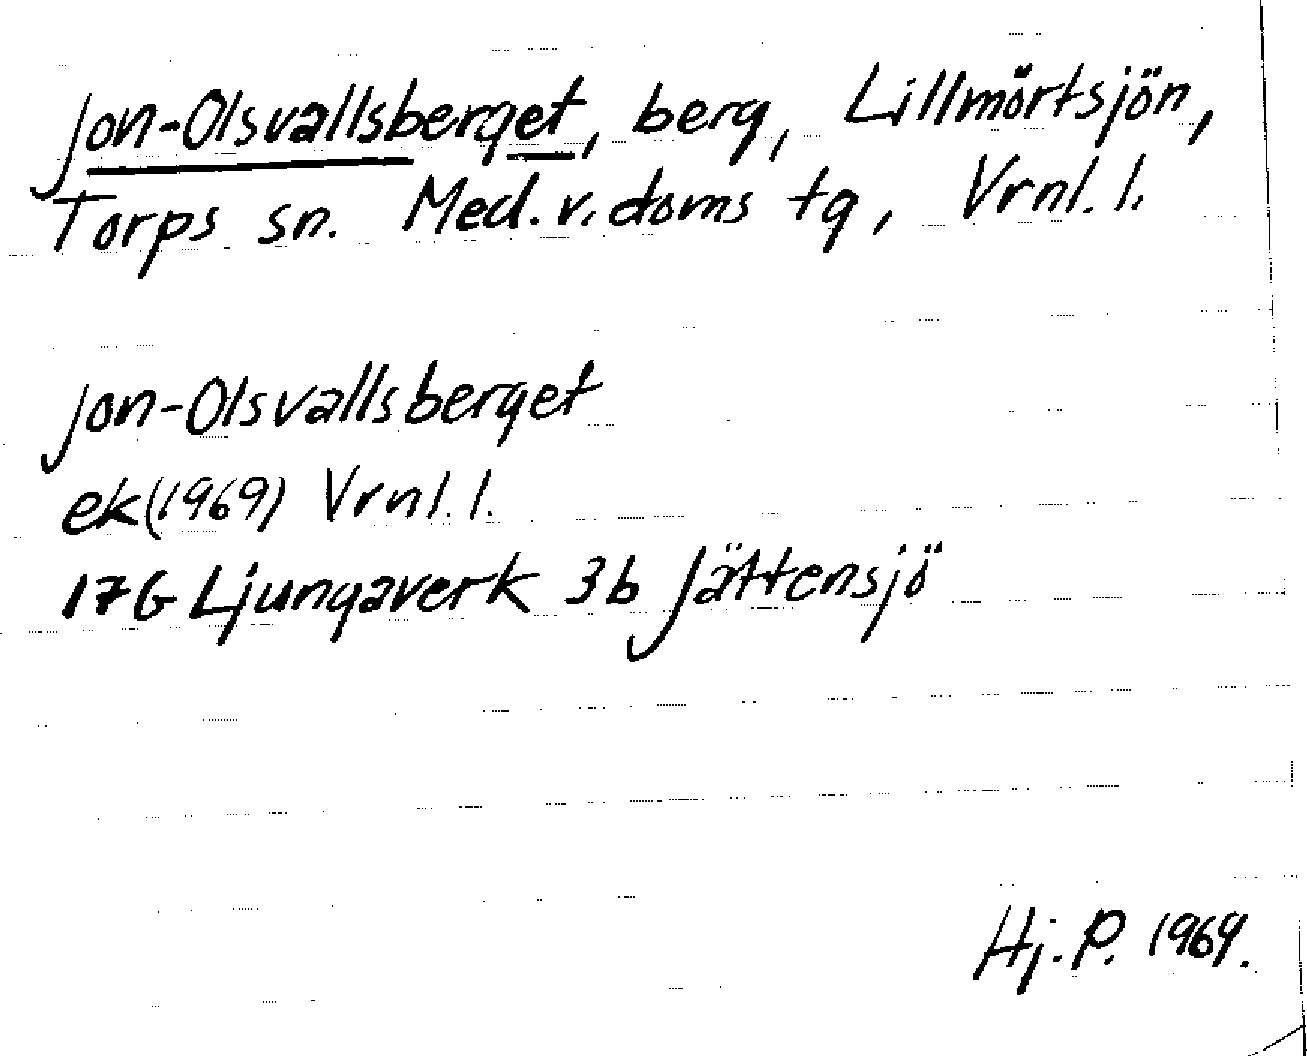 Jon-Olsvallsberget, berg, Lillmörtsjön,
Torps sn. Med. v. doms tg, Vrnl. l.
Jon-Olsvallsberget
ek(1969) Vrnl. l.
17G Ljungaverk 3b Jättensjö
Hj. P. 1969.